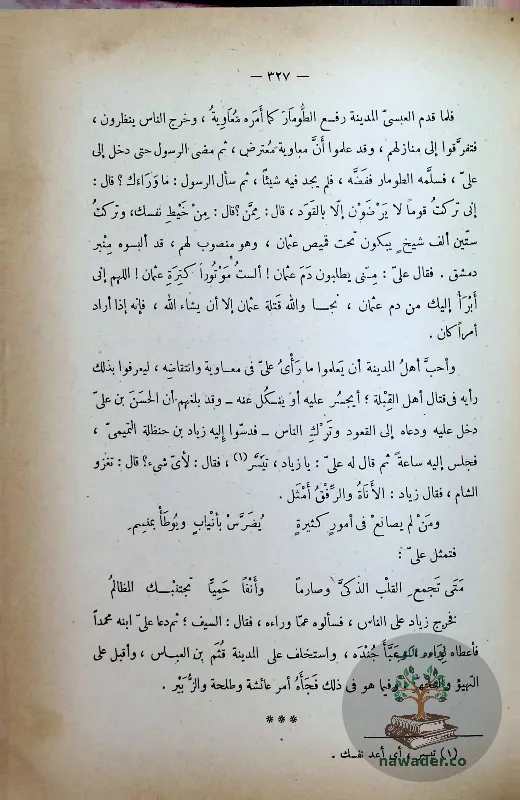 — ٣٢٧ —
فلما قدم العبسىّ المدينة رفع الطُّومَارَ كما أَمَره مُعَاوِيةُ ، وخرج الناس ينظرون ،
فتفرَّقوا إلى منازلهم ، وقد علموا أنَّ معاوية مُعترض ، ثم مضى الرسول حتى دخل إلى
علىّ ، فسلَّمه الطومار ففَضَّه ، فلم يجد فيه شيئًا ، ثم سأل الرسول : ما وَرَاءك ؟ قال :
إنى تركتُ قوماً لا يَرْضَوْن إلّا بالقَوَد ، قال : مِمَّن ؟ قال : مِنْ خَيطِ نفسك، وتركتُ
ستّين ألف شيخٍ يبكون تحت قميص عثمان ، وهو منصوب لهم ، قد ألبسوه مِنْبر
دمشق . فقال علىّ : مِنّى يطلبون دَمَ عثمان ! ألستُ مَوْتُوراً كتِرَةِ عثمان ! اللهم إنى
أَبْرَأ إليك من دم عثمان ، نجا والله قتلة عثمان إلا أن يشاء الله ، فإنه إذا أراد
أمراً كان .
وأحبَّ أهلُ المدينة أن يَعلموا ما رَأْىُ علىّ فى معاوية وانتقاضِه ، ليعرفوا بذلك
رأيه فى قتال أهل القِبْلة ؛ أيجسُر عليه أو ينكُل عنه — وقد بلغهم أن الحسَنَ بن علىّ
دخل عليه ودعاه إلى القعود وتَرْكِ الناس — فدسّوا إليه زياد بن حنظلة التميمىّ ،
فجلس إليه ساعةً ثم قال له علىّ : يا زياد ، تَيَسَّر (١) ، فقال : لأىّ شىء ؟ قال : تغزو
الشام ، فقال زياد : الأَنَاةُ والرِّفْقُ أَمْثَل .
ومَنْ لم يصانعْ فى أمورٍ كثيرةٍ يُضَرَّسْ بأنْيابٍ ويُوطَأْ بمنسِمِ
فتمثل علىّ :
مَتَى تَجمعِ القلبَ الذكىَّ وصارماً وأنْفًا حَمِيًّا تجتنبْك المظالمُ
فخرج زياد على الناس ، فسألوه عمّا وراءه ، فقال : السيف ؛ ثم دعا علىّ ابنه محمداً
فأعطاه جُنْدَه ، واستخلف على المدينة قُثَم بن العباس ، وأقبل على
التهيؤ وفيما هو فى ذلك فَجَأَهُ أمر عائشة وطلحة والزُّبَيْر .
***
(١) تيسر ، أى أعد نفسك .
nawader.co